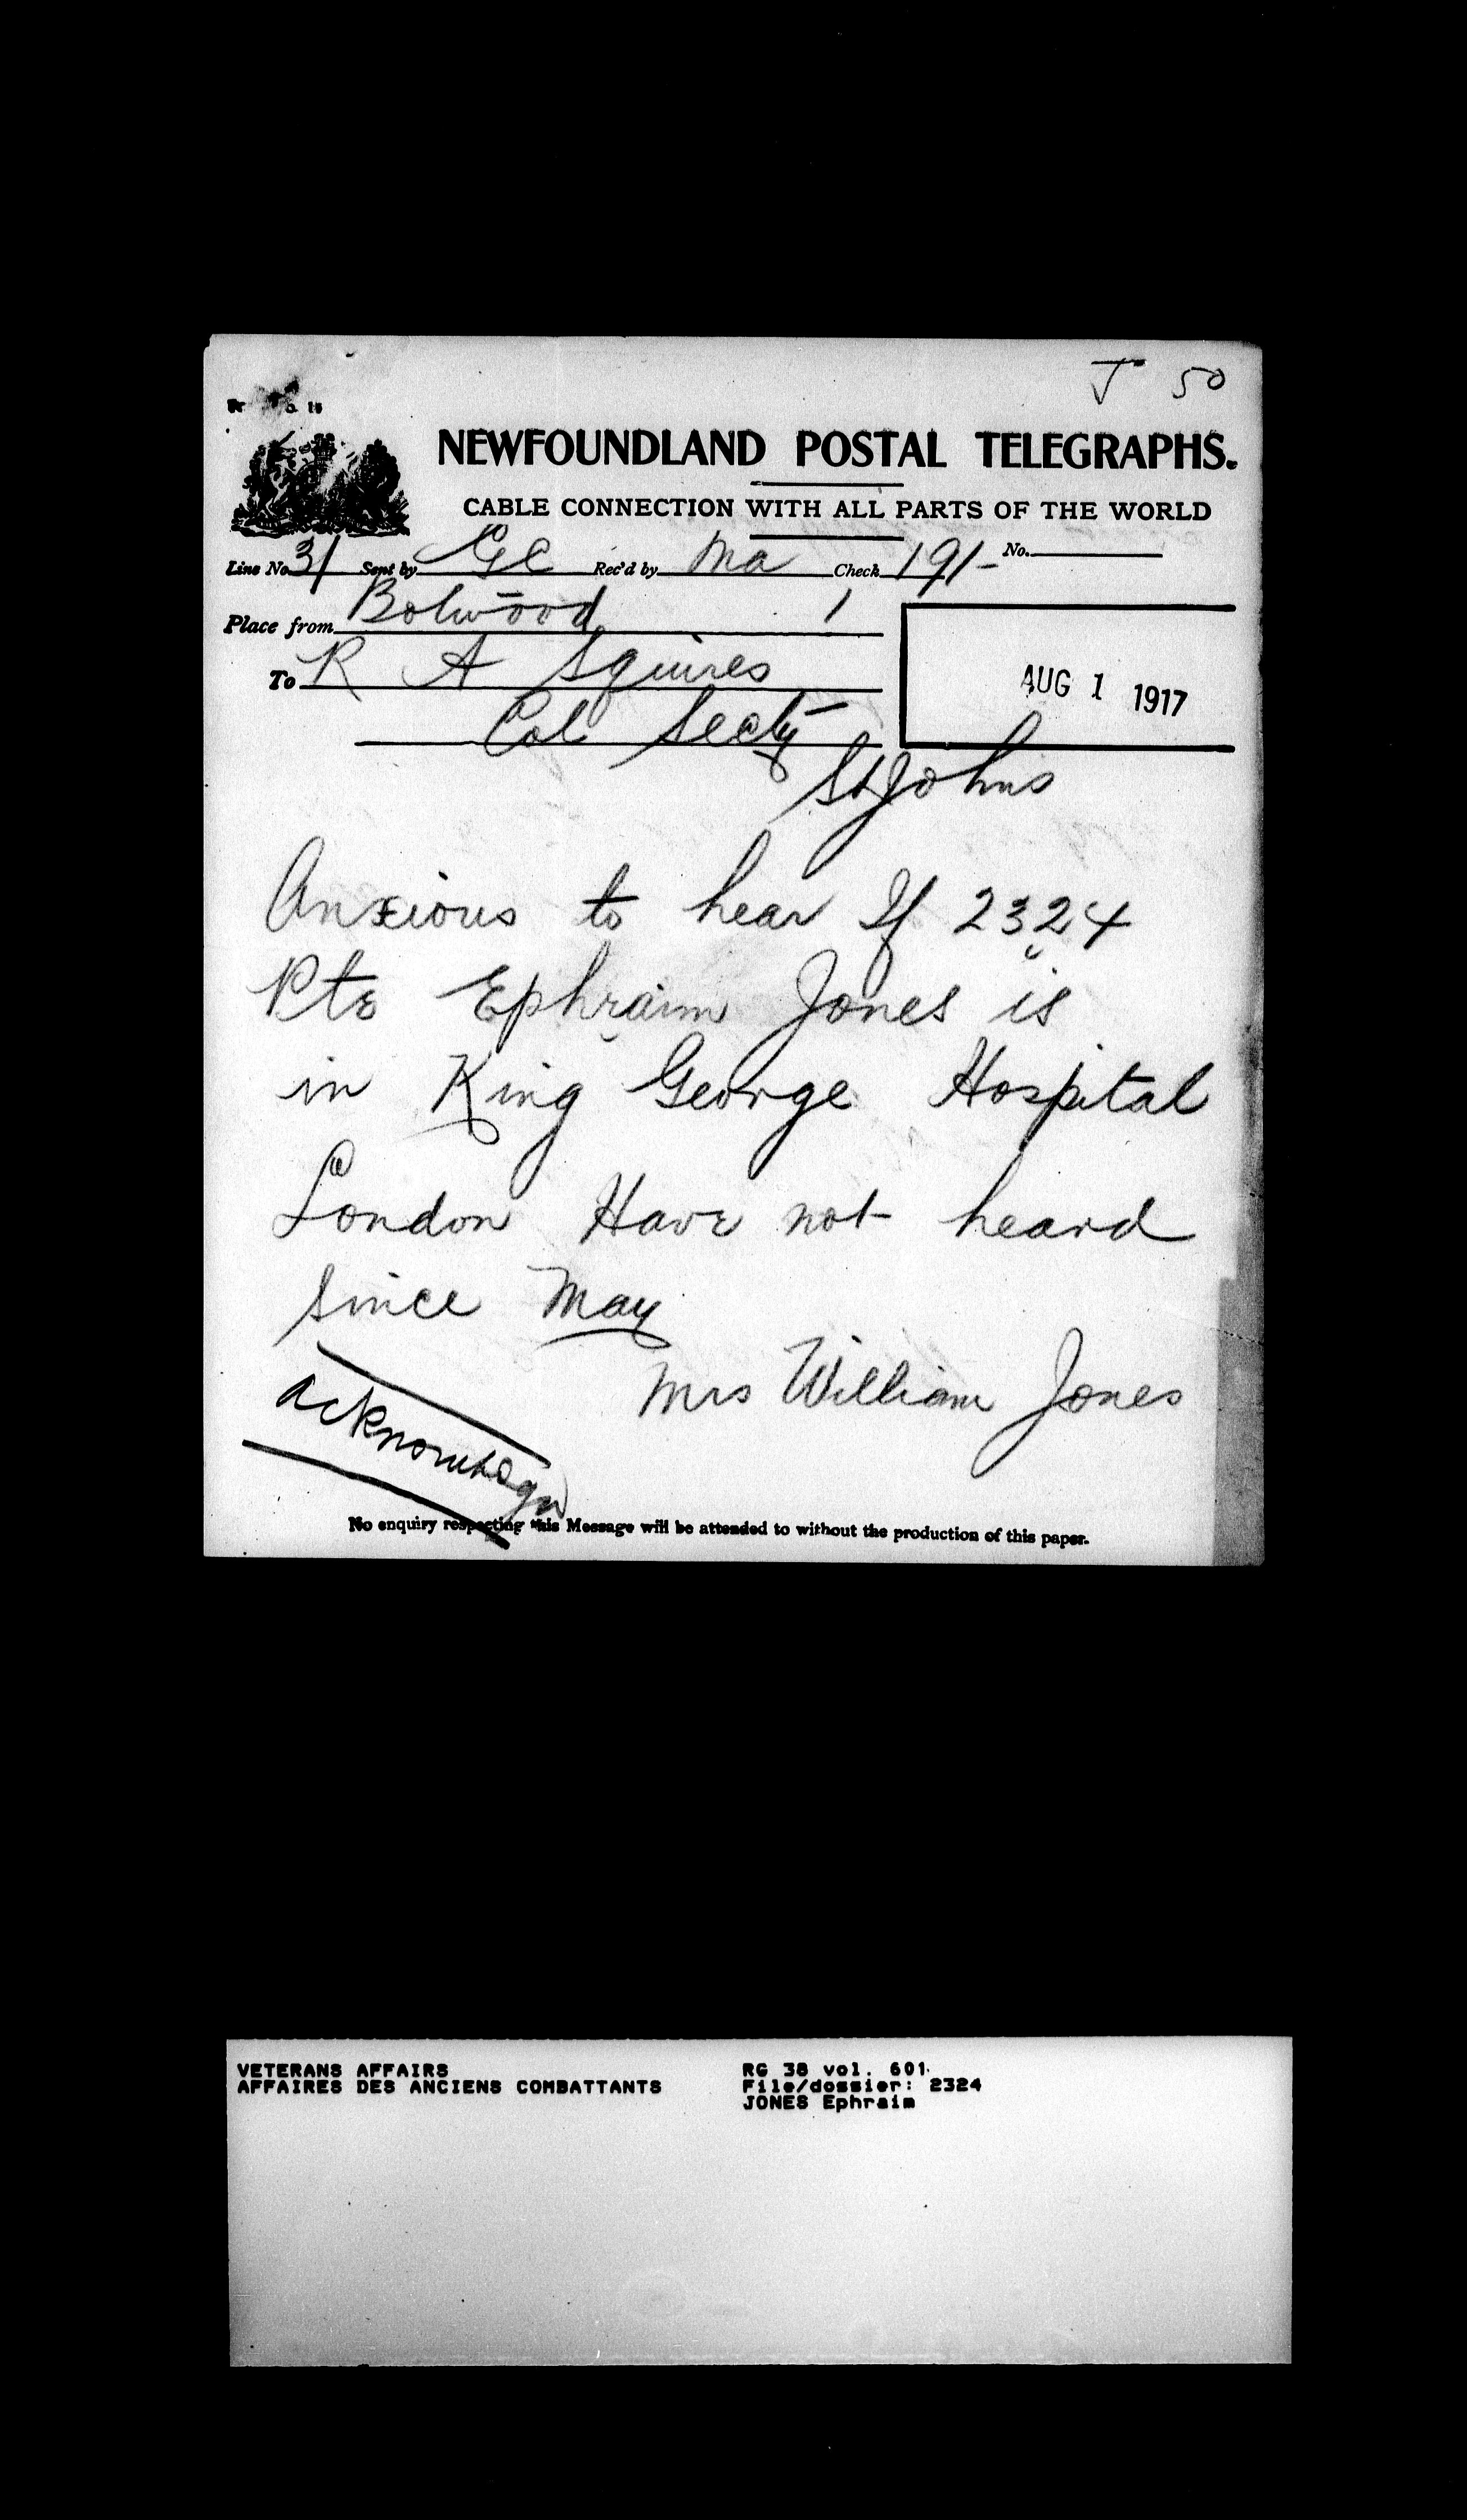 J 50
NEWFOUNDLAND POSTAL TELEGRAPHS.
CABLE CONNECTION WITH ALL PARTS OF THE WORLD
Line No. 31 Sent by GC Rec'd by Ma Check 19/- No.
Place from Botwood 1
To R A Squires
Col Secty
AUG 1 1917
St Johns
Anxious to hear If 2324
Pte Ephraim Jones is
in King George Hospital
London Have not heard
since May
Mrs William Jones
No enquiry respecting this Message will be attended to without the production of this paper.
VETERANS AFFAIRS
AFFAIRES DES ANCIENS COMBATTANTS
RG 38 vol. 601
File/dossier: 2324
JONES Ephraim